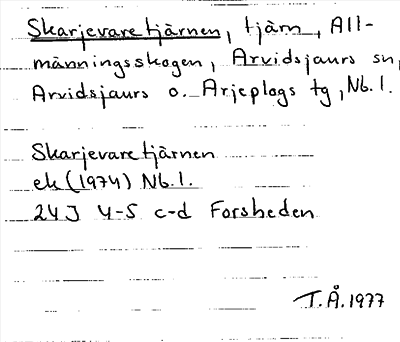 Skarjevaretjärnen, tjärn, All-
männingsskogen, Arvidsjaurs sn,
Arvidsjaurs o. Arjeplogs tg, Nb. l.
Skarjevaretjärnen
ek (1974) Nb. l.
24J 4-5 c-d Forsheden
T.Å. 1977